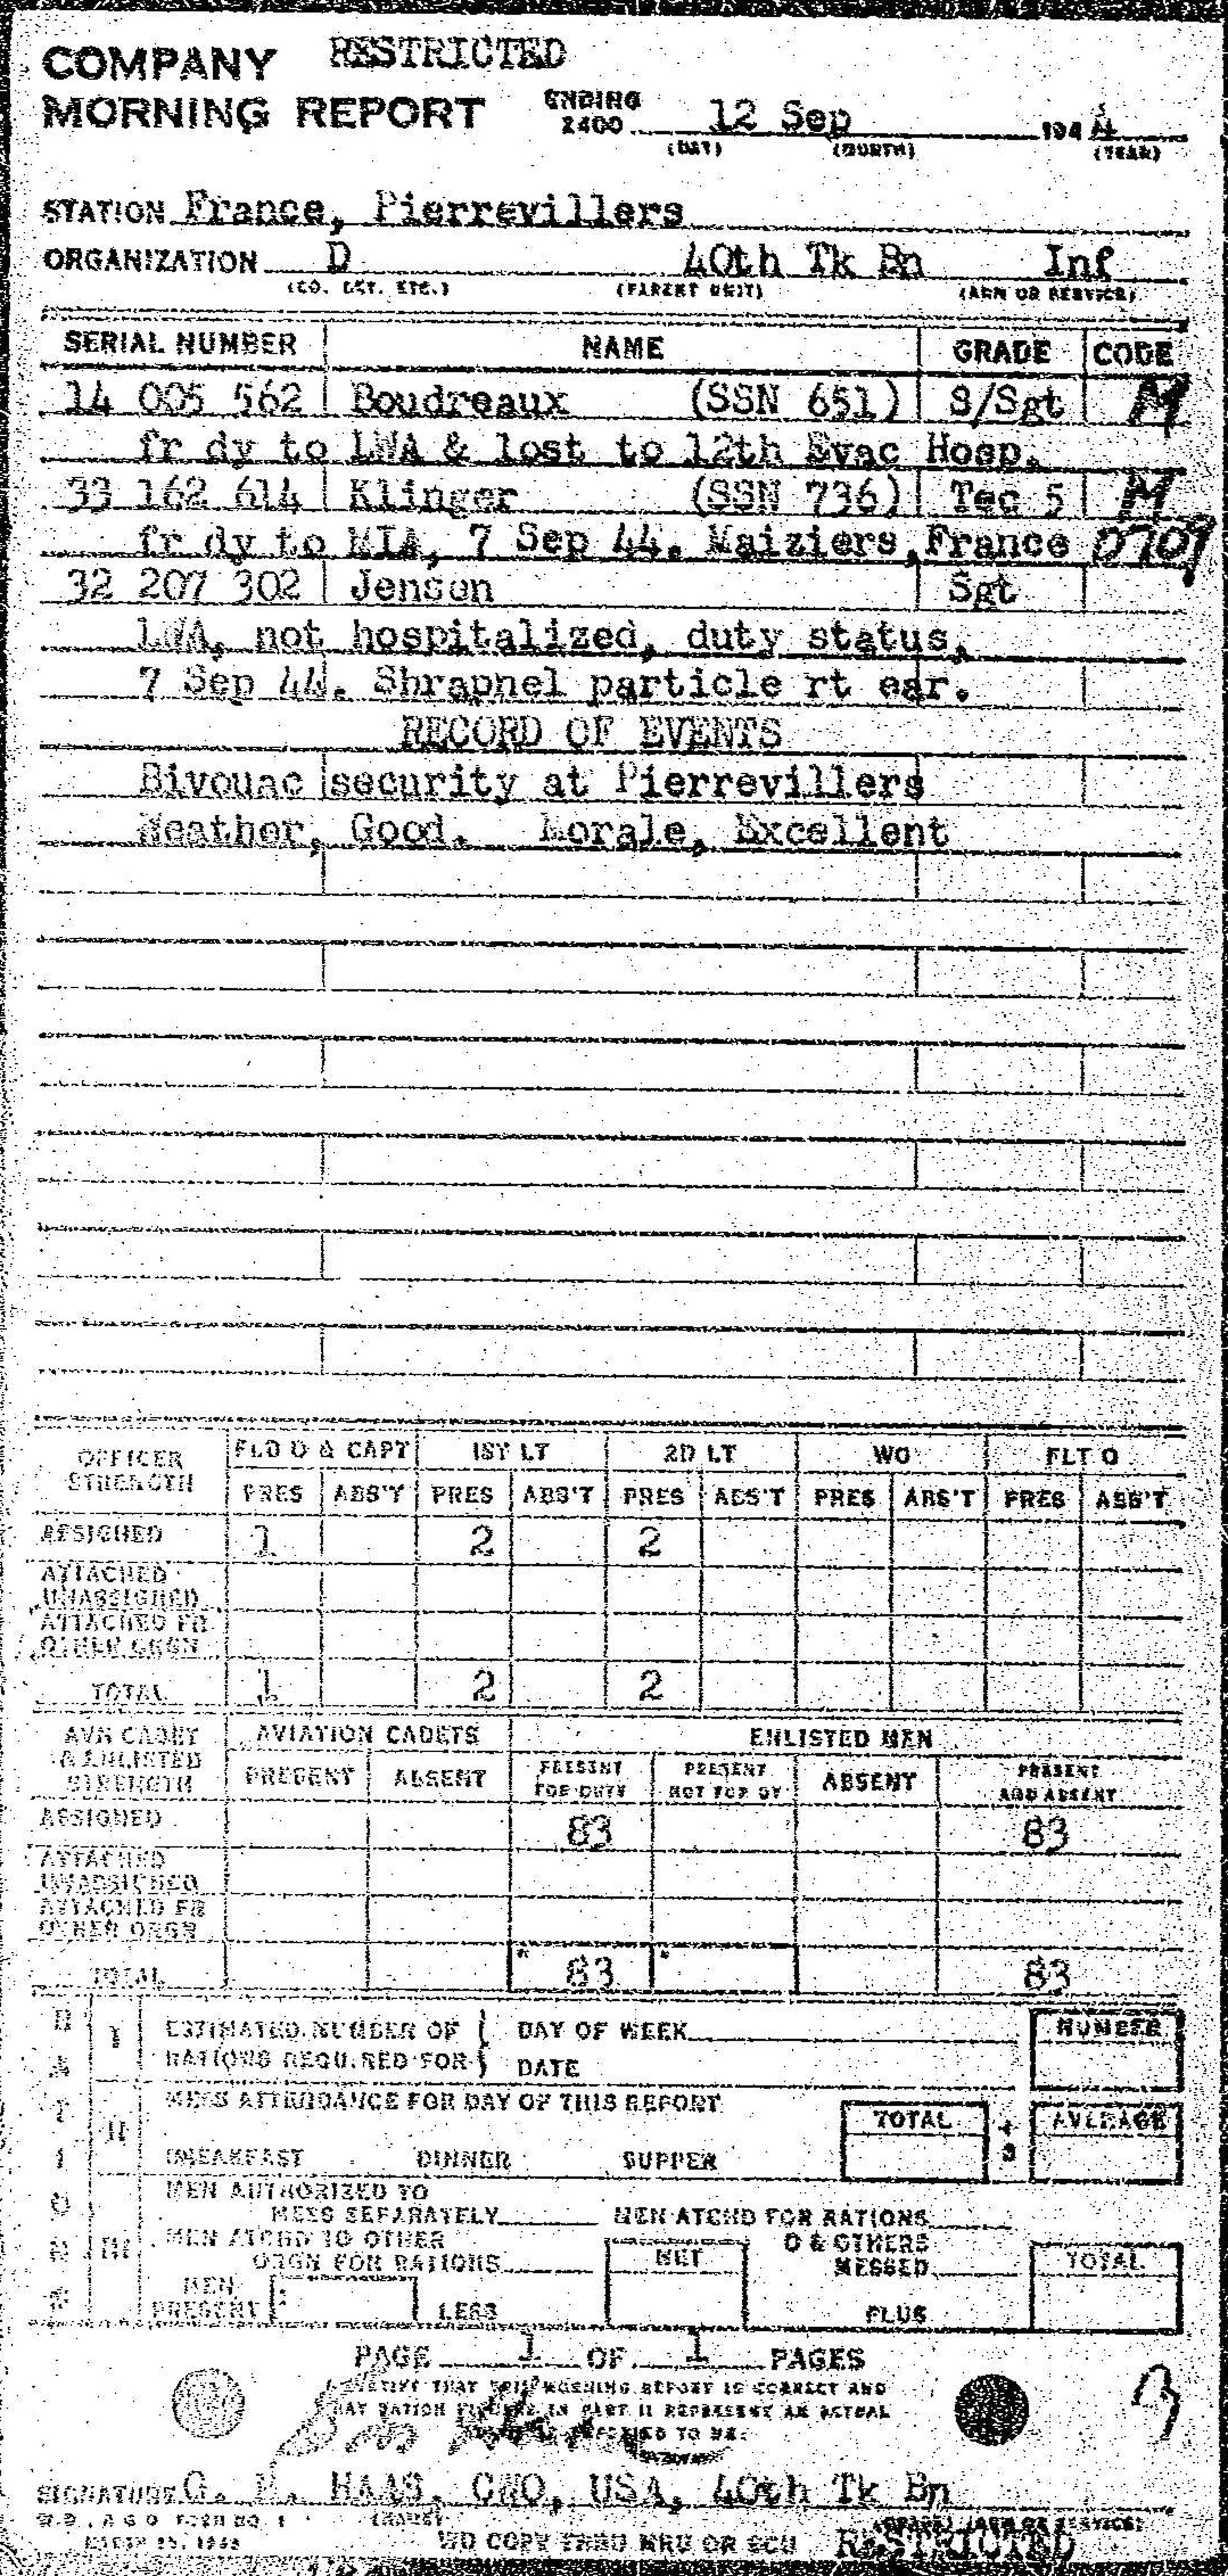 COMPANY RESTRICTED
MORNING REPORT ENDING 2400 12 Sep 1944
(DAY) (MONTH) (YEAR)
STATION France, Pierrevillers
ORGANIZATION D 40th Tk Bn Inf
(CO. DET. ETC.) (PARENT UNIT) (ARM OR SERVICE)
SERIAL NUMBER NAME GRADE CODE
14 005 562 Boudreaux (SSN 651) S/Sgt M
fr dy to LWA & lost to 12th Evac Hosp.
33 162 614 Klinger (SSN 736) Tec 5 M
fr dy to MIA, 7 Sep 44. Maiziers, France 0709
32 207 302 Jensen Sgt
LWA, not hospitalized, duty status,
7 Sep 44. Shrapnel particle rt ear.
RECORD OF EVENTS
Bivouac security at Pierrevillers
Weather, Good. Morale, Excellent
OFFICER STRENGTH FLD O & CAPT 1ST LT 2D LT WO FLT O
PRES ABS'T PRES ABS'T PRES ABS'T PRES ABS'T PRES ABS'T
ASSIGNED 1 2 2
ATTACHED UNASSIGNED
ATTACHED FR OTHER ORGN
TOTAL 1 2 2
AVN CADET & ENLISTED STRENGTH AVIATION CADETS ENLISTED MEN
PRESENT ABSENT PRESENT FOR DUTY PRESENT NOT FOR DY ABSENT PRESENT AND ABSENT
ASSIGNED 83 83
ATTACHED UNASSIGNED
ATTACHED FR OTHER ORGN
TOTAL * 83 * 83
RATIONS
I ESTIMATED NUMBER OF RATIONS REQUIRED FOR DAY OF WEEK NUMBER
DATE
II MESS ATTENDANCE FOR DAY OF THIS REPORT TOTAL ÷ 3 AVERAGE
BREAKFAST DINNER SUPPER
III MEN AUTHORIZED TO MESS SEPARATELY MEN ATCHD FOR RATIONS
MEN ATCHD TO OTHER ORGN FOR RATIONS NET O & OTHERS MESSED TOTAL
MEN PRESENT LESS PLUS
PAGE 1 OF 1 PAGES
I CERTIFY THAT THIS MORNING REPORT IS CORRECT AND
THAT RATION FIGURES IN PART II REPRESENT AN ACTUAL
TO ME.
3
SIGNATURE G. M. HAAS, CWO, USA, 40th Tk Bn
W.D., A.G.O. FORM NO. 1 (NAME) (GRADE) (ARM OR SERVICE)
WD COPY THRU MRU OR SCU RESTRICTED